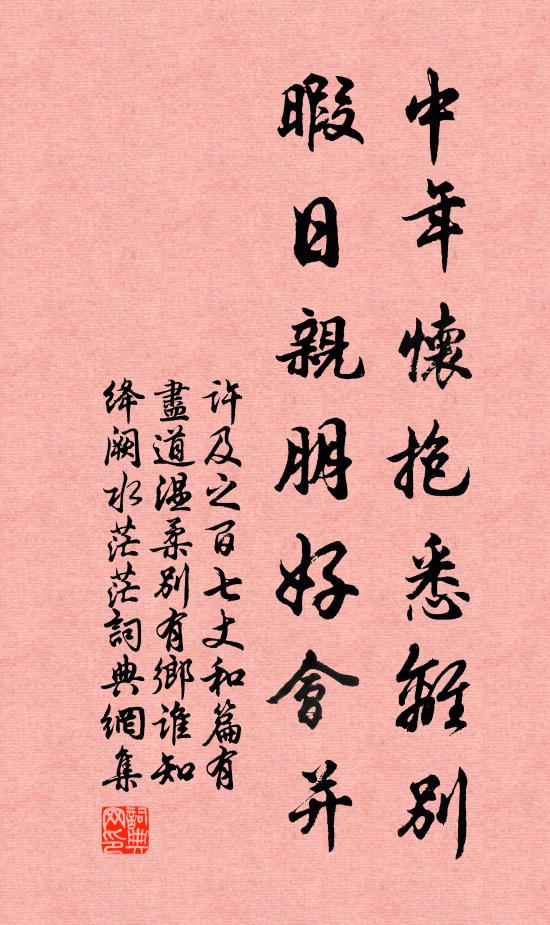 中年懷抱悉離別
暇日親朋好會并
許及之百七丈和篇有
盡道温柔別有鄉誰知
絳闕水茫茫詞典網集
詞典
网印